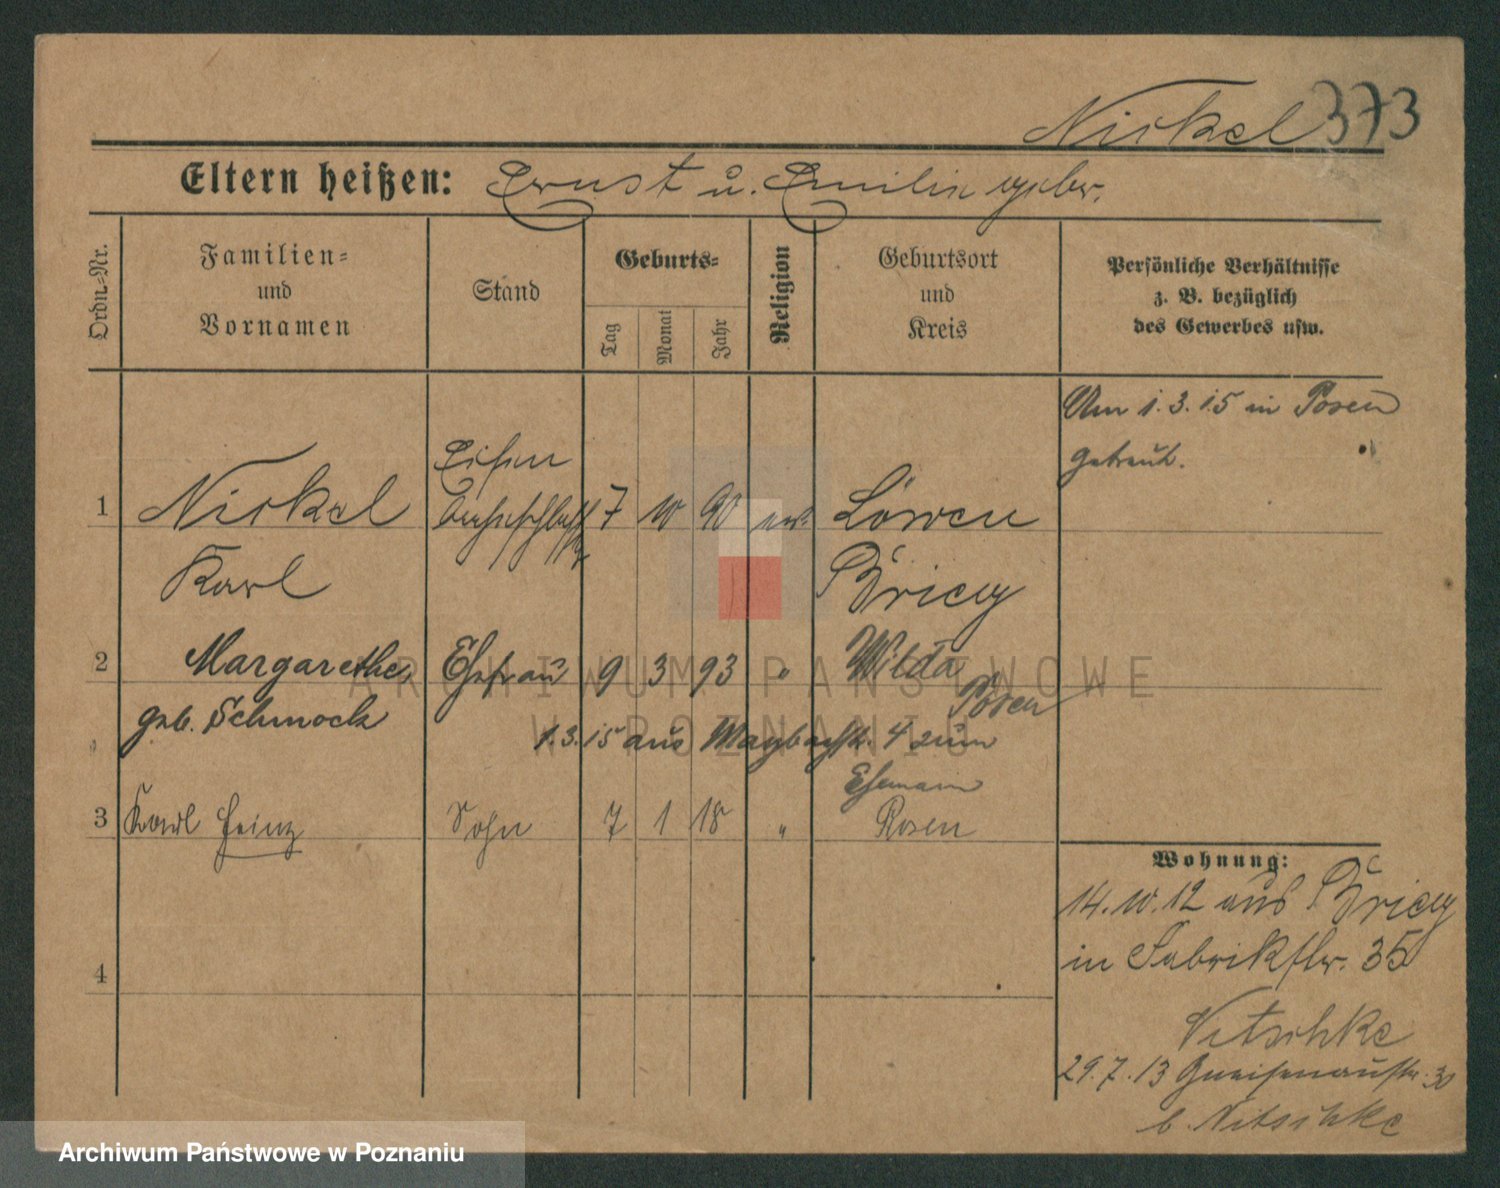 Nickel 373
Eltern heißen: Ernst u. Emilie geb.
Ordn.-Nr.
Familien=
und
Vornamen
Stand
Geburts=
Tag
Monat
Jahr
Religion
Geburtsort
und
Kreis
Persönliche Verhältnisse
z. B. bezüglich
des Gewerbes usw.
Am 1.3.15 in Posen
getraut.
1 Nickel Eisen 7 10 90 ev. Löwen
Karl Brieg
2 Margarethe Ehefrau 9 3 93 " Wilda
geb. Schmock Posen
1.3.15 aus Maybachstr. 4 zum
Ehemann
3 Karl Heinz Sohn 7 1 18 " Posen
4
Wohnung:
14.10.12 aus Brieg
in Fabrikstr. 35
Nitschke
29.7.13 Gneisenaustr. 30
b. Nitschke
ARCHIWUM PAŃSTWOWE
W POZNANIU
Archiwum Państwowe w Poznaniu